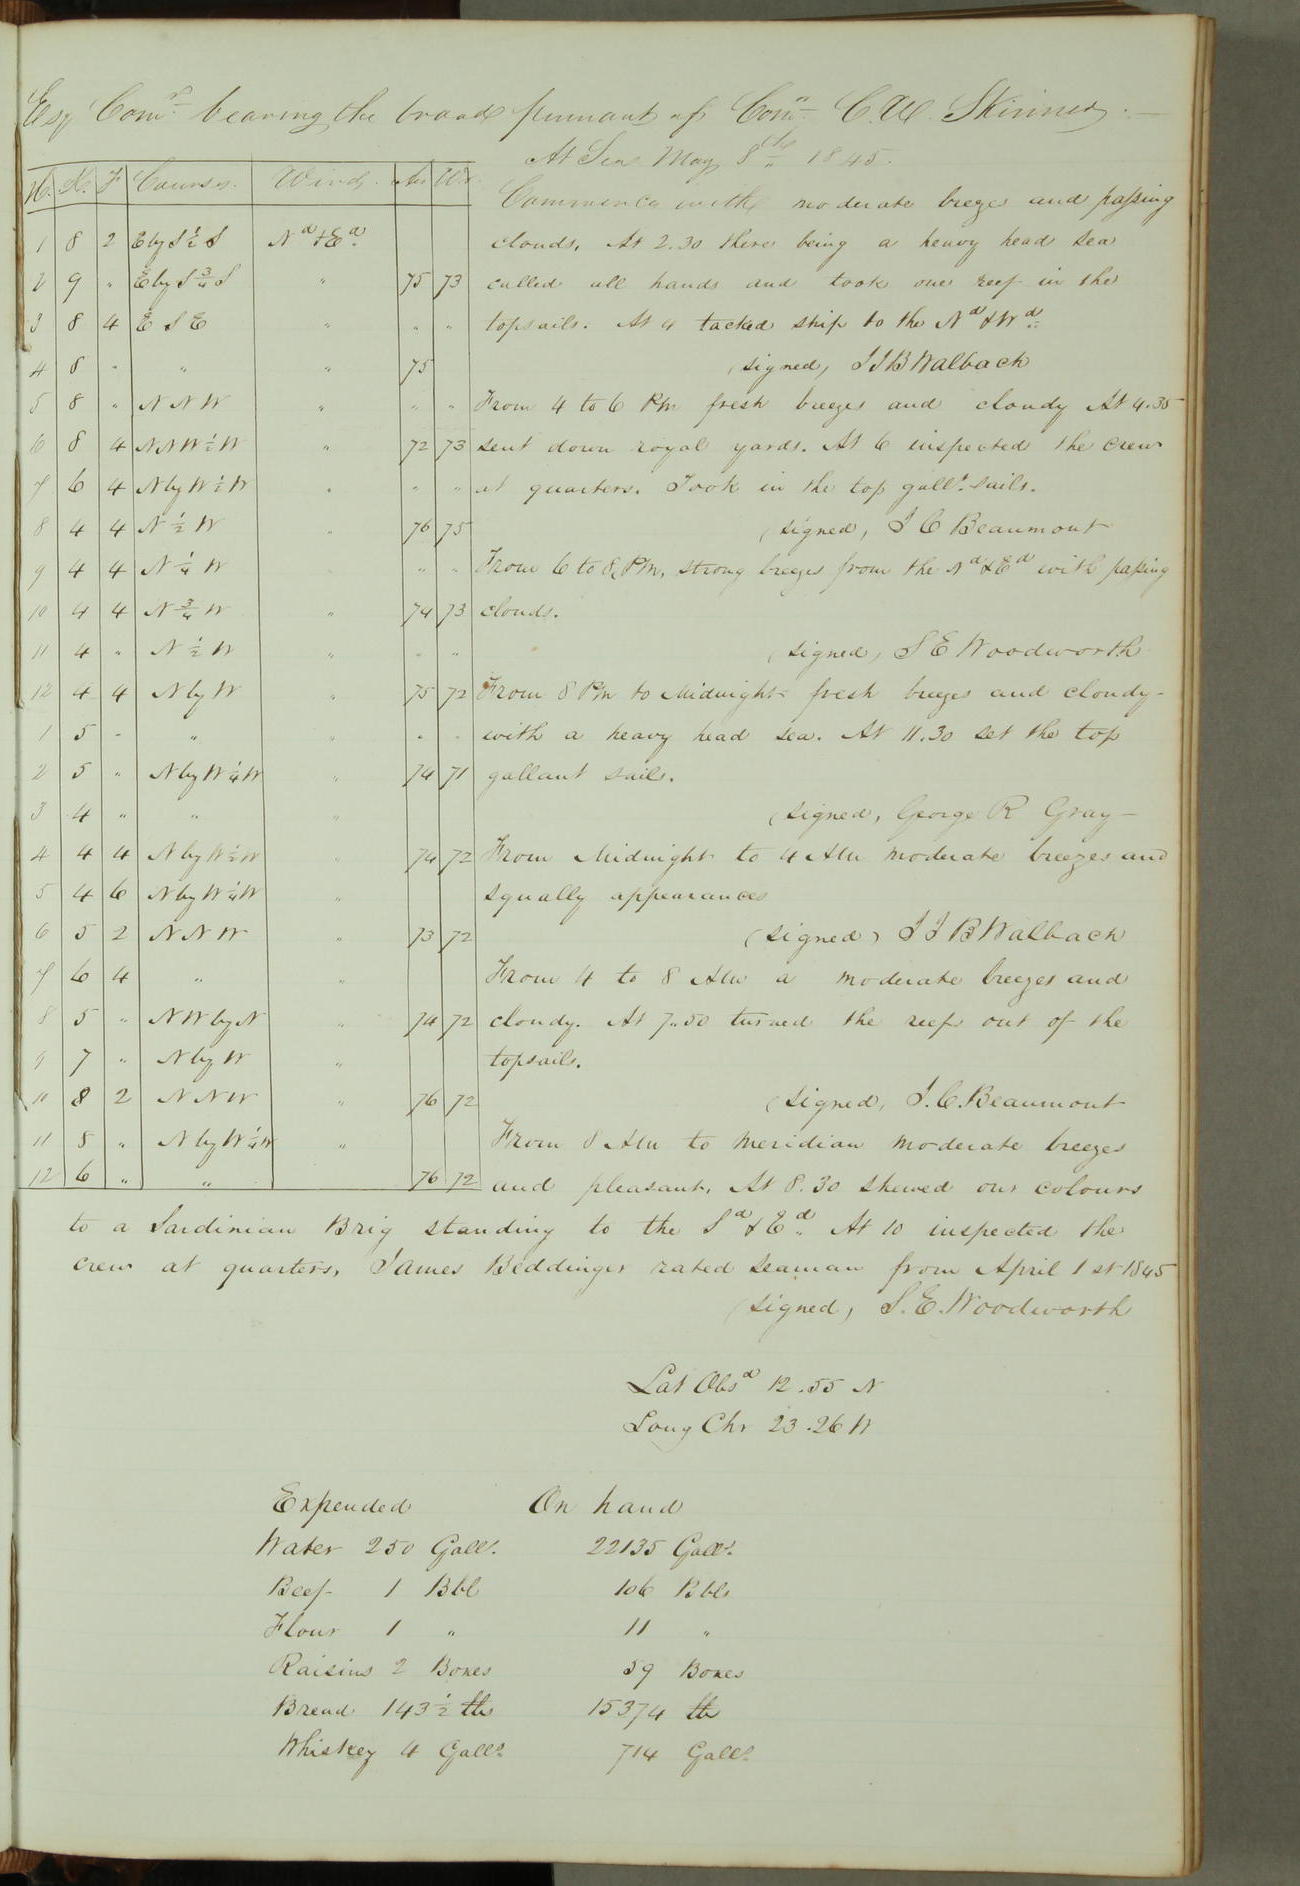 Esqr Comr bearing the broad pennant of Comr C. W. Skinner.—
At Sea May 8th 1845.
H. K. F Courses. Winds. Air Wr.
Commence with moderate breezes and passing
1 8 2 E by S ½ S Nd & Ed clouds. At 2.30 there being a heavy head sea
2 9 " E by S ¾ S " 75 73 called all hands and took one reef in the
3 8 4 E S E " " " topsails. At 4 tacked ship to the Nd & Wd.
4 8 " " " 75 (signed) J J B Walbach
5 8 " N N W " " " From 4 to 6 PM fresh breezes and cloudy At 4.35
6 8 4 NNW ½ W " 72 73 sent down royal yards. At 6 inspected the crew
7 6 4 N by W ½ W " " " at quarters. Took in the top gallt. sails.
8 4 4 N ½ W " 76 75 (signed) J C Beaumont
9 4 4 N ¼ W " " From 6 to 8 PM, strong breezes from the Nd & Ed with passing
10 4 4 N ¾ W " 74 73 clouds.
11 4 " N ½ W " " " (signed) S E Woodworth
12 4 4 N by W " 75 72 From 8 PM to Midnight fresh breezes and cloudy
1 5 " " " " " with a heavy head sea. At 11.30 set the top
2 5 " N by W ¼ W " 74 71 gallant sails.
3 4 " " " (signed, George R Gray —
4 4 4 N by W ½ W " 74 72 From Midnight to 4 AM moderate breezes and
5 4 6 N by W ¼ W " squally appearances
6 5 2 N N W " 73 72 (signed) J J B Walbach
7 6 4 " " From 4 to 8 AM a moderate breezes and
8 5 " NW by N " 74 72 cloudy. At 7.50 turned the reefs out of the
9 7 " N by W " topsails.
10 8 2 N N W " 76 72 (signed, J. C. Beaumont
11 8 " N by W ¼ W " From 8 AM to Meridian moderate breezes
12 6 " " 76 72 and pleasant. At 8.30 shewed our colours
to a Sardinian Brig standing to the Sd & Ed. At 10 inspected the
crew at quarters, James Beddinger rated seaman from April 1st 1845
(signed, S. E. Woodworth
Lat Obsd 12.55 N
Long Chr 23.26 W
Expended On hand
Water 250 Galls. 22135 Galls.
Beef 1 Bbl 106 Bbls
Flour 1 " 11 "
Raisins 2 Boxes 59 Boxes
Bread 143 ½ lbs 15374 lbs
Whiskey 4 Galls 714 Galls